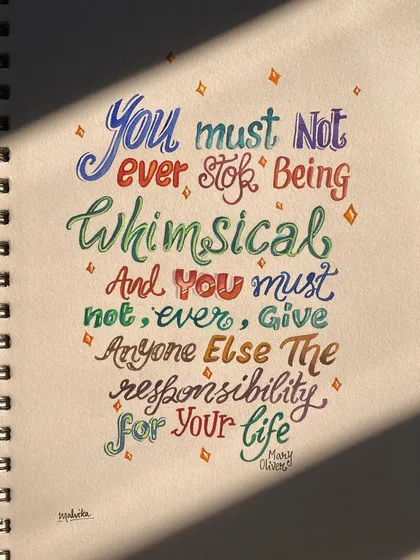 You must Not
ever stop Being
Whimsical
And YOU must
not, ever, Give
Anyone Else The
responsibility
for your life
Mary
Oliver
Malvika